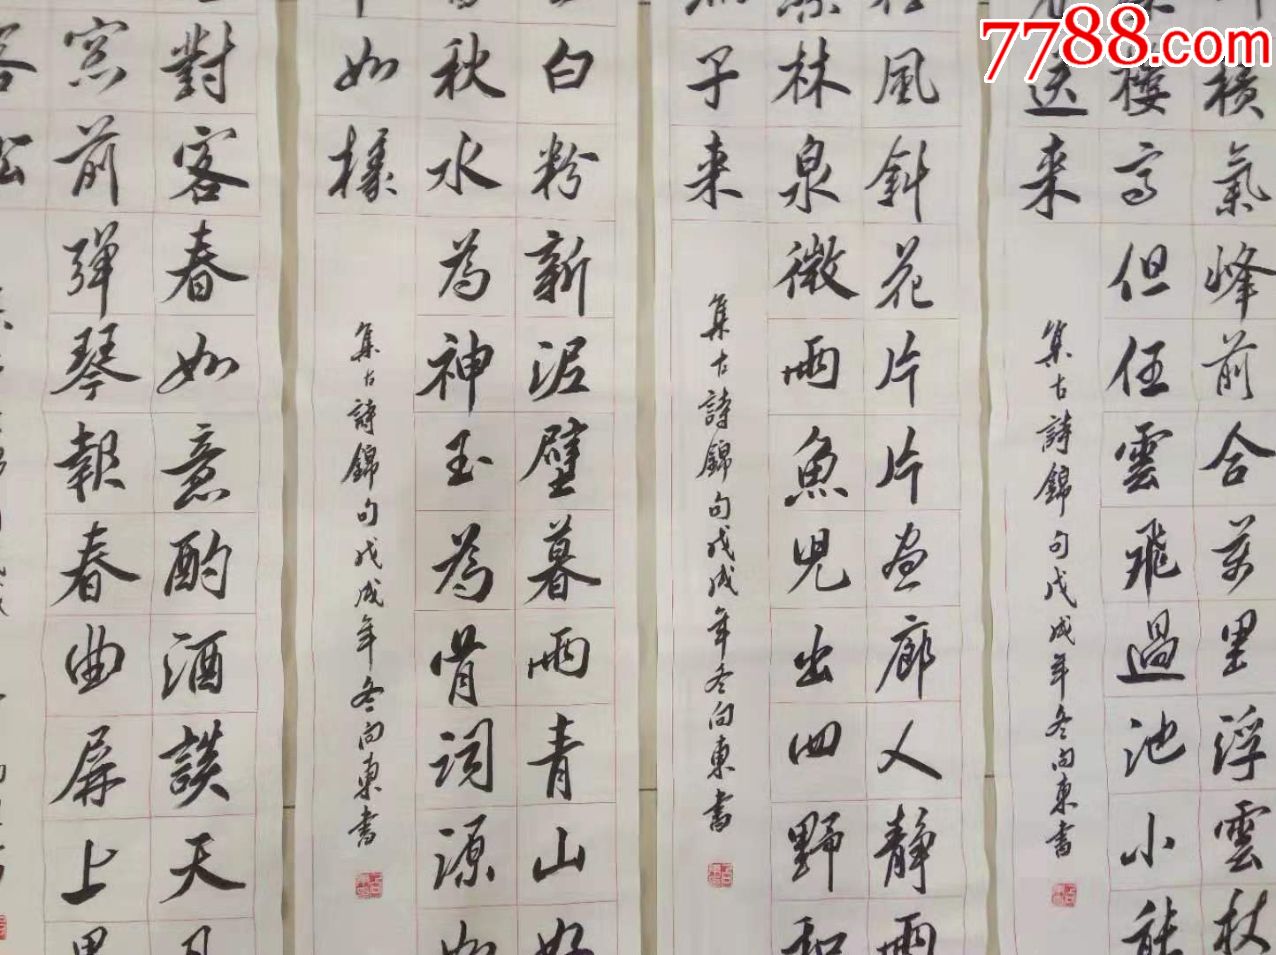 7788.com
橫氣峰前合萬里浮雲杖
樓高但任雲飛過池小能
送来
集古詩錦句戊戌年冬向東書
風斜花片片画廊人静雨
林泉微雨魚兒出四野和
子来
集古詩錦句戊戌年冬向東書
白粉新泥壁暮雨青山好
秋水為神玉為骨词源如
如椽
集古詩錦句戊戌年冬向東書
對客春如意酌酒談天
窓前弹琴報春曲屏上